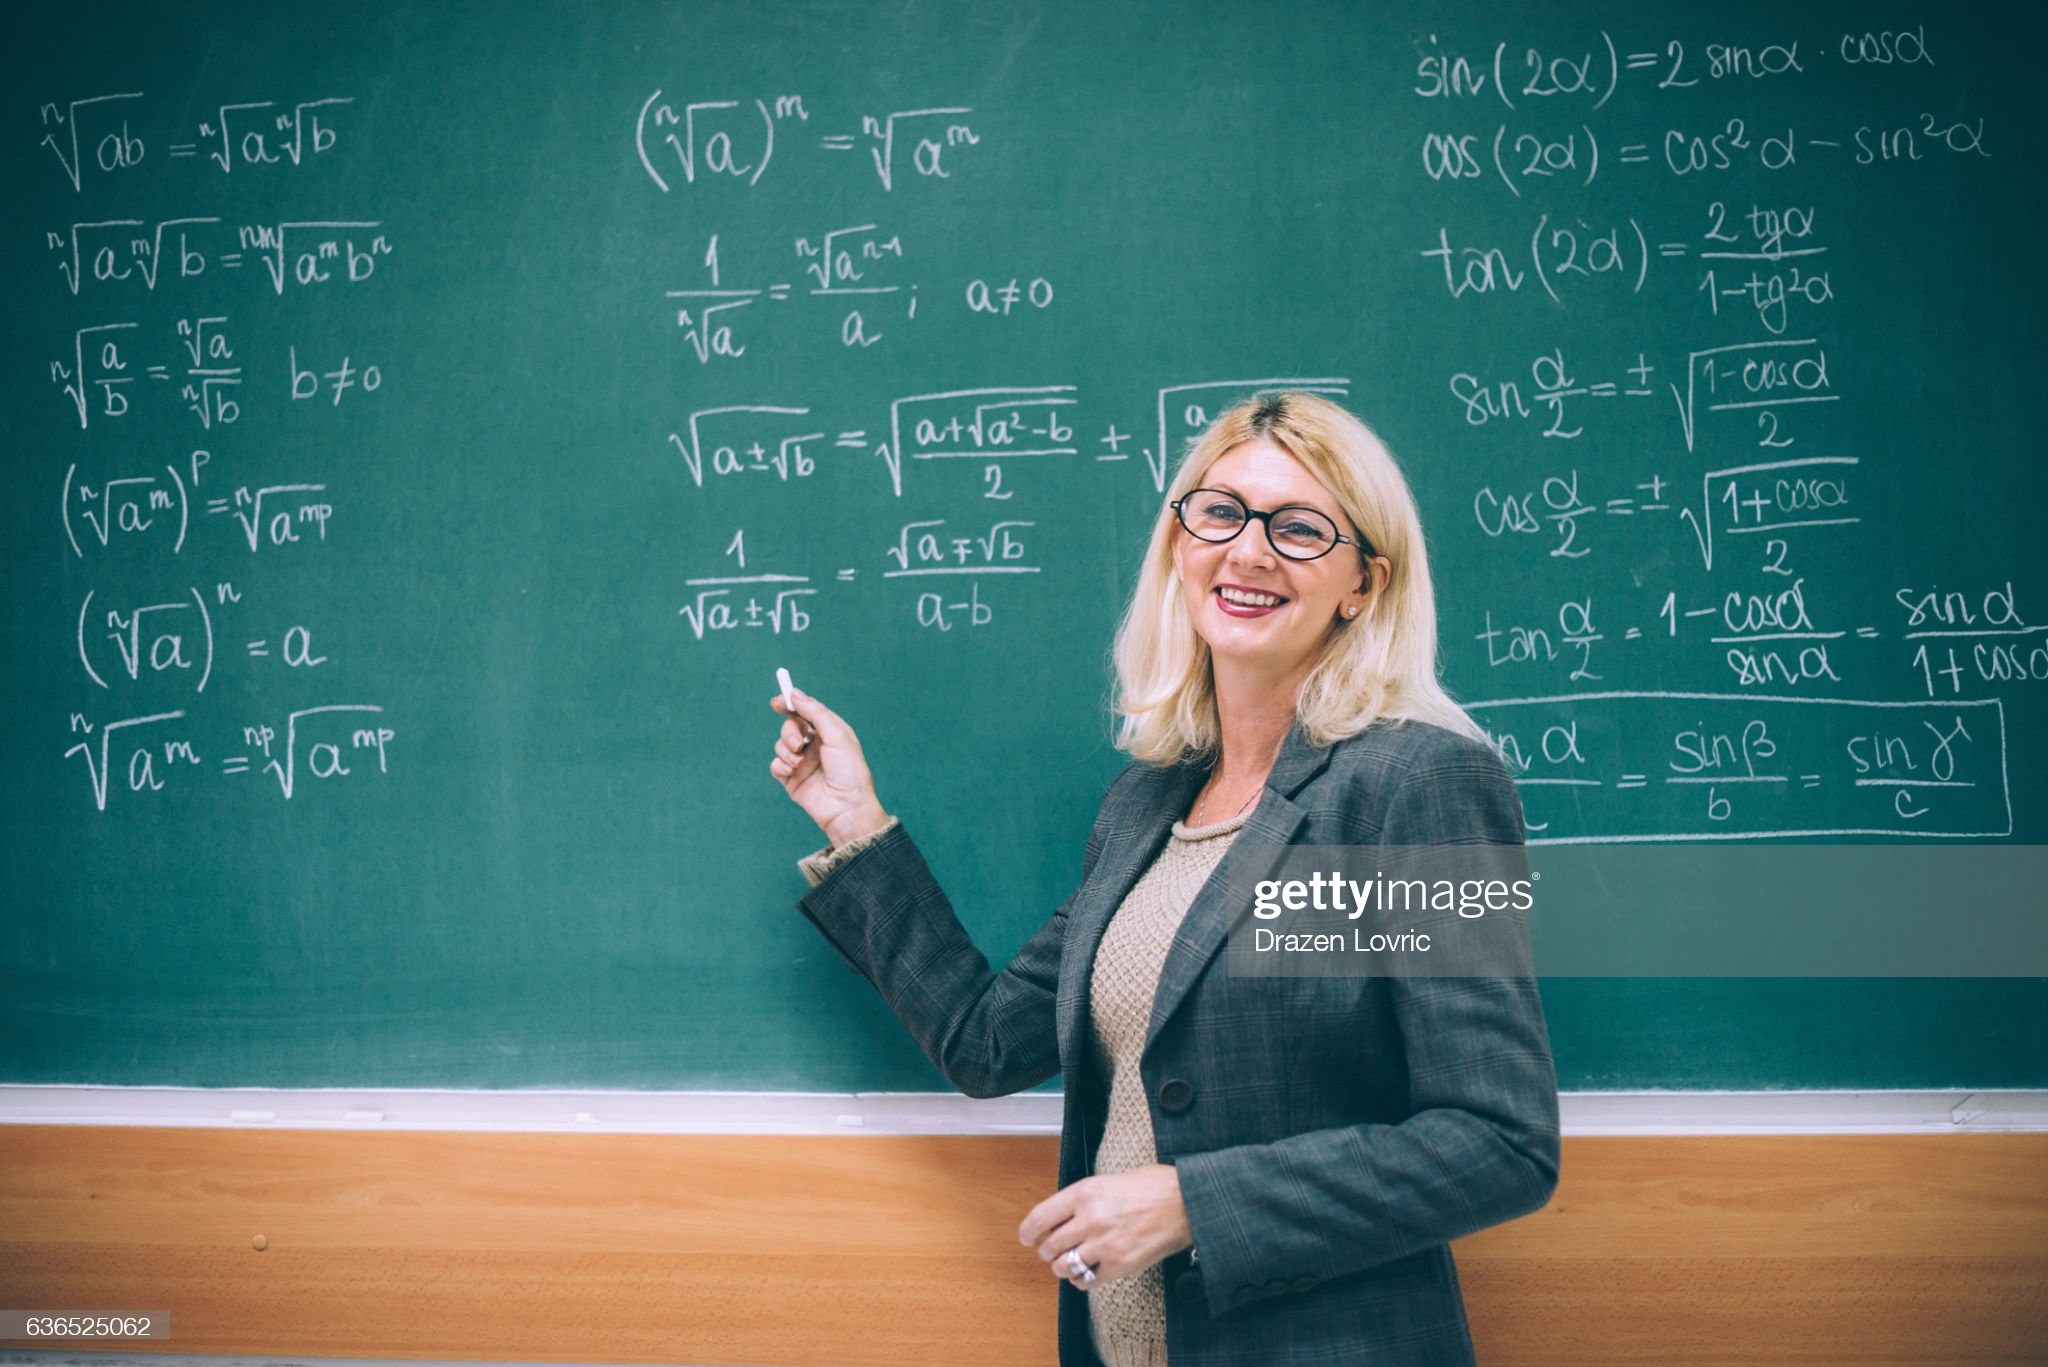 ⁿ√ab = ⁿ√a ⁿ√b
ⁿ√a ᵐ√b = ⁿᵐ√aᵐbⁿ
ⁿ√(a/b) = ⁿ√a / ⁿ√b b≠0
(ⁿ√aᵐ)ᵖ = ⁿ√aᵐᵖ
(ⁿ√a)ⁿ = a
ⁿ√aᵐ = ⁿᵖ√aᵐᵖ
(ⁿ√a)ᵐ = ⁿ√aᵐ
1/ⁿ√a = ⁿ√aⁿ⁻¹ / a ; a≠0
√(a±√b) = √((a+√(a²-b))/2) ± √(a
1/(√a±√b) = (√a∓√b)/(a-b)
sin(2α)=2 sinα · cosα
cos(2α) = cos²α - sin²α
tan(2α) = 2tgα / (1-tg²α)
sin α/2 = ± √((1-cosα)/2)
cos α/2 = ± √((1+cosα)/2)
tan α/2 = (1-cosα)/sinα = sinα/(1+cosα
α = sinβ/b = sinγ/c
gettyimages®
Drazen Lovric
636525062